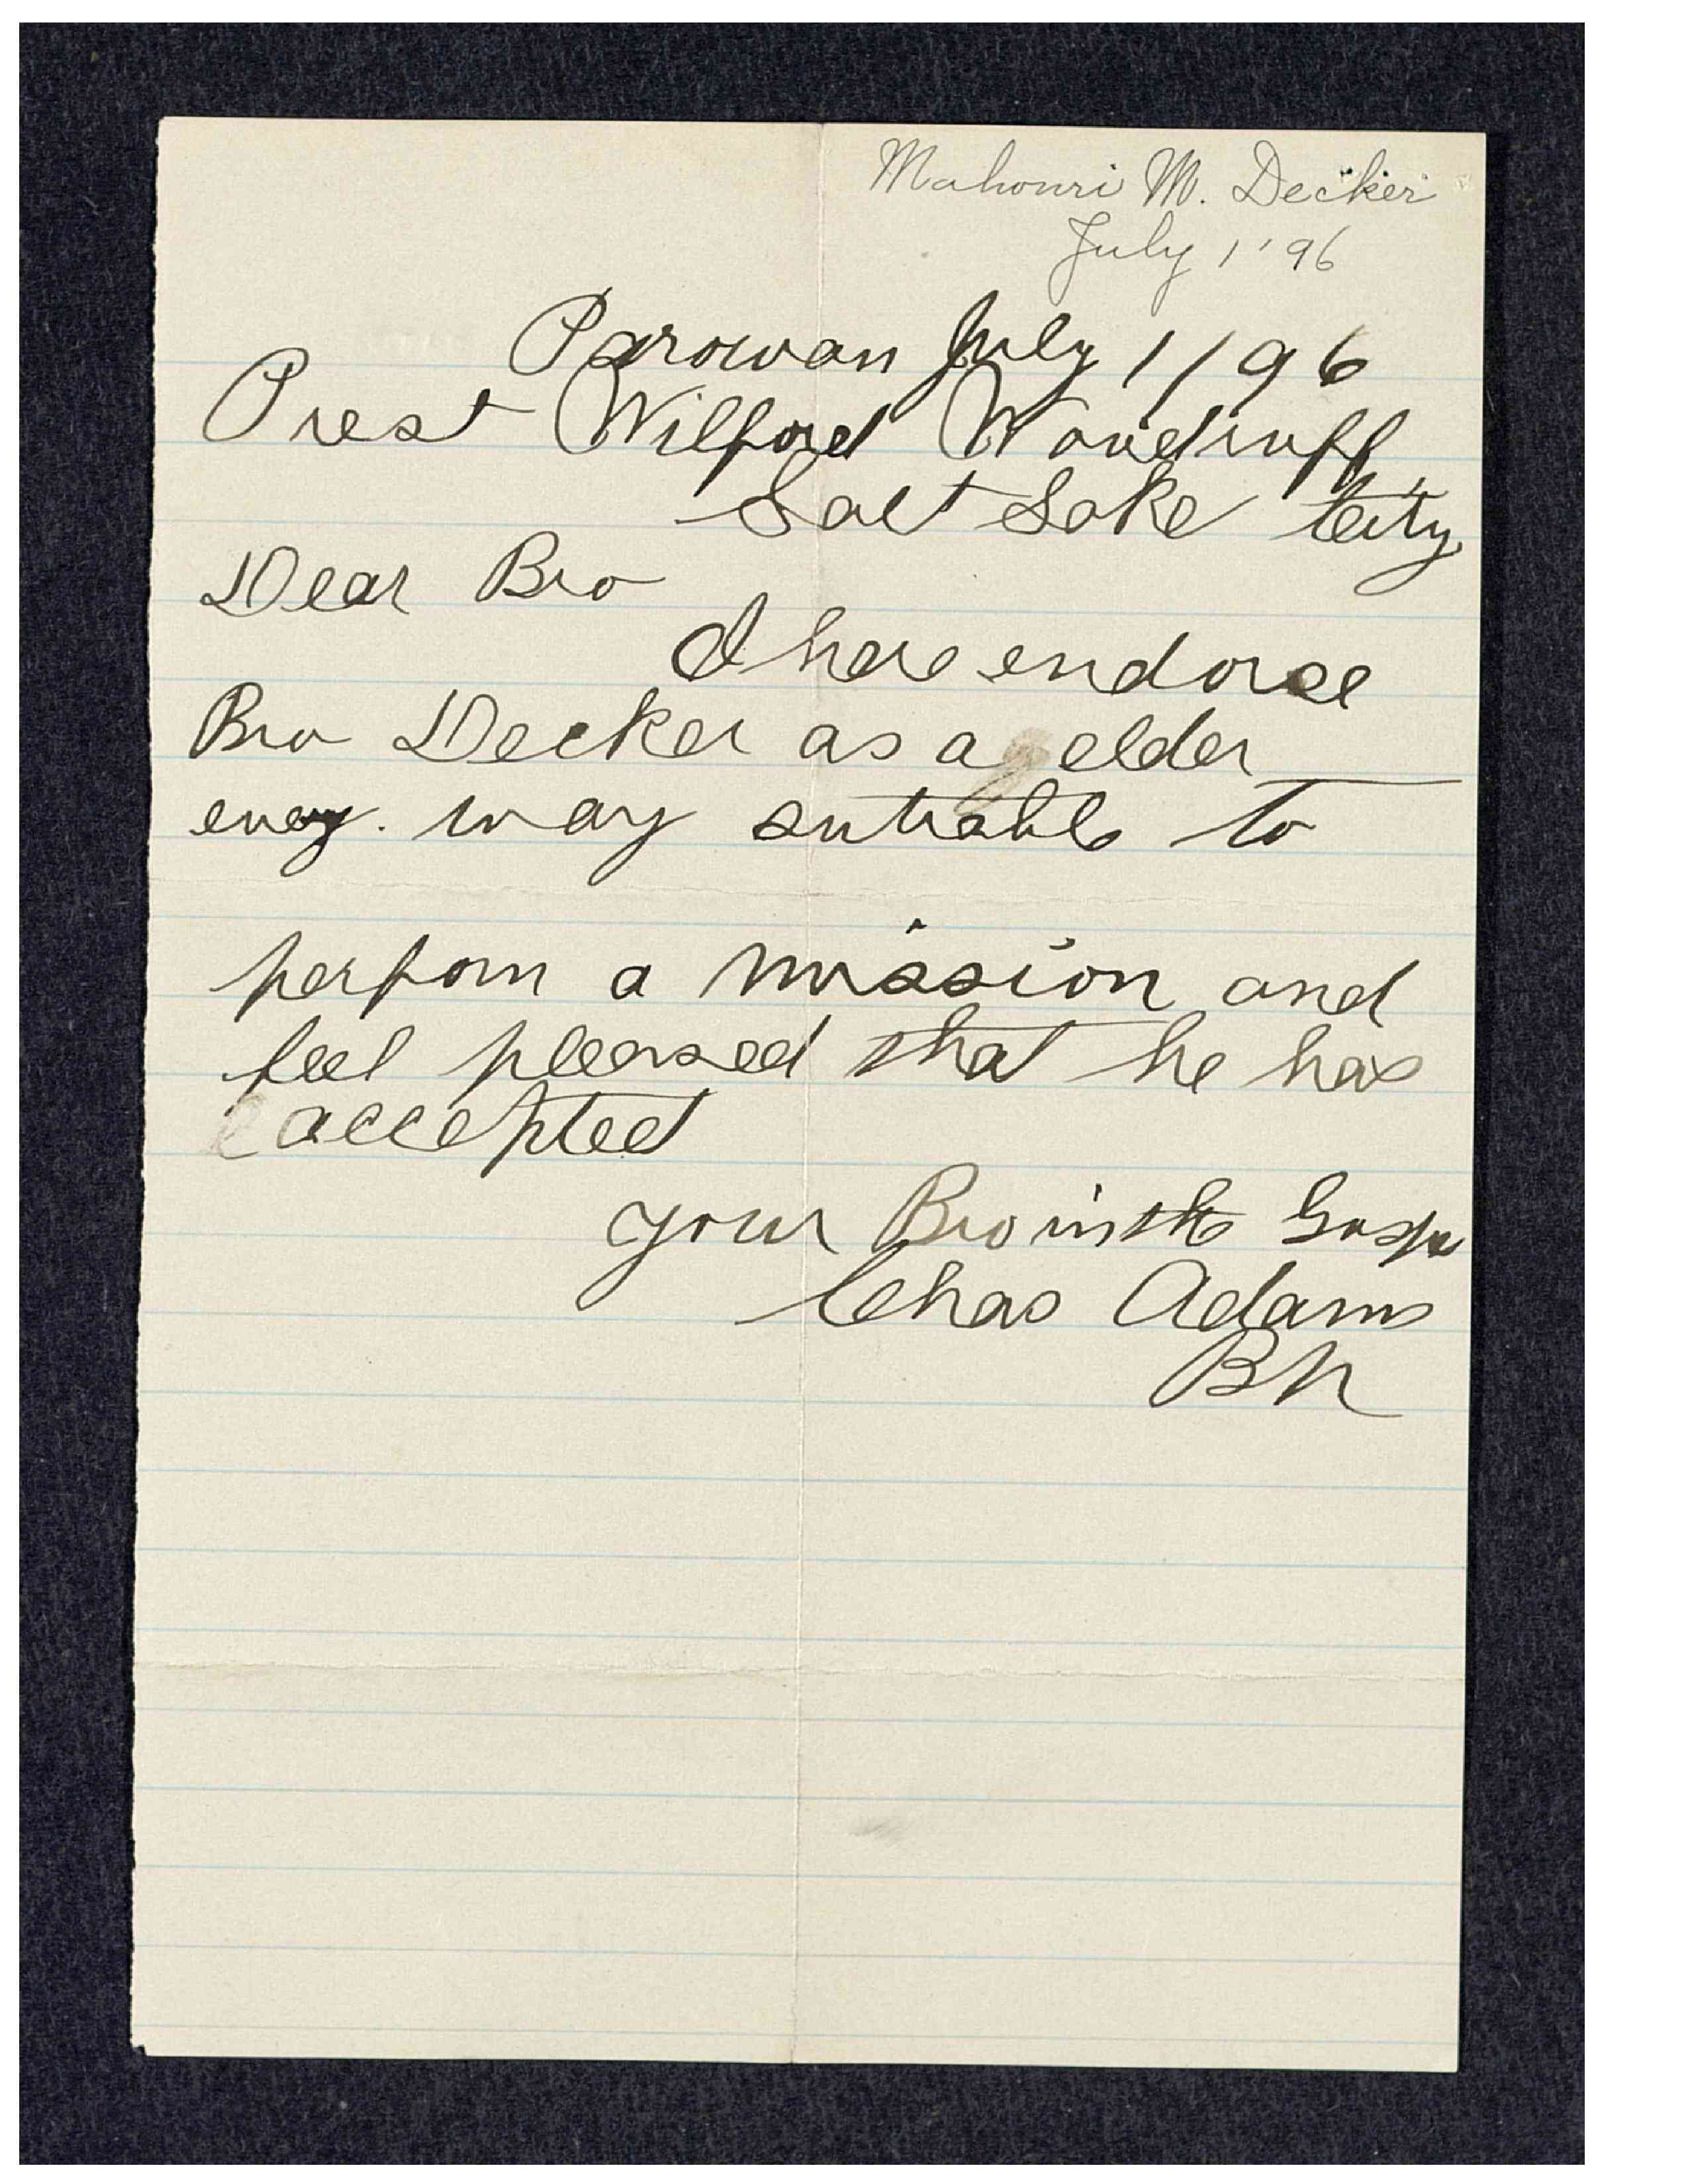 Mahonri M. Decker
July 1 '96
Parowan July 1/96
Prest Wilford Woodruff
Salt Lake City
Dear Bro
I have endorse
Bro Decker as a elder
every way sutiable to
perform a mission and
feel pleased that he has
accepted
your Bro in the Gospe
Chas Adams